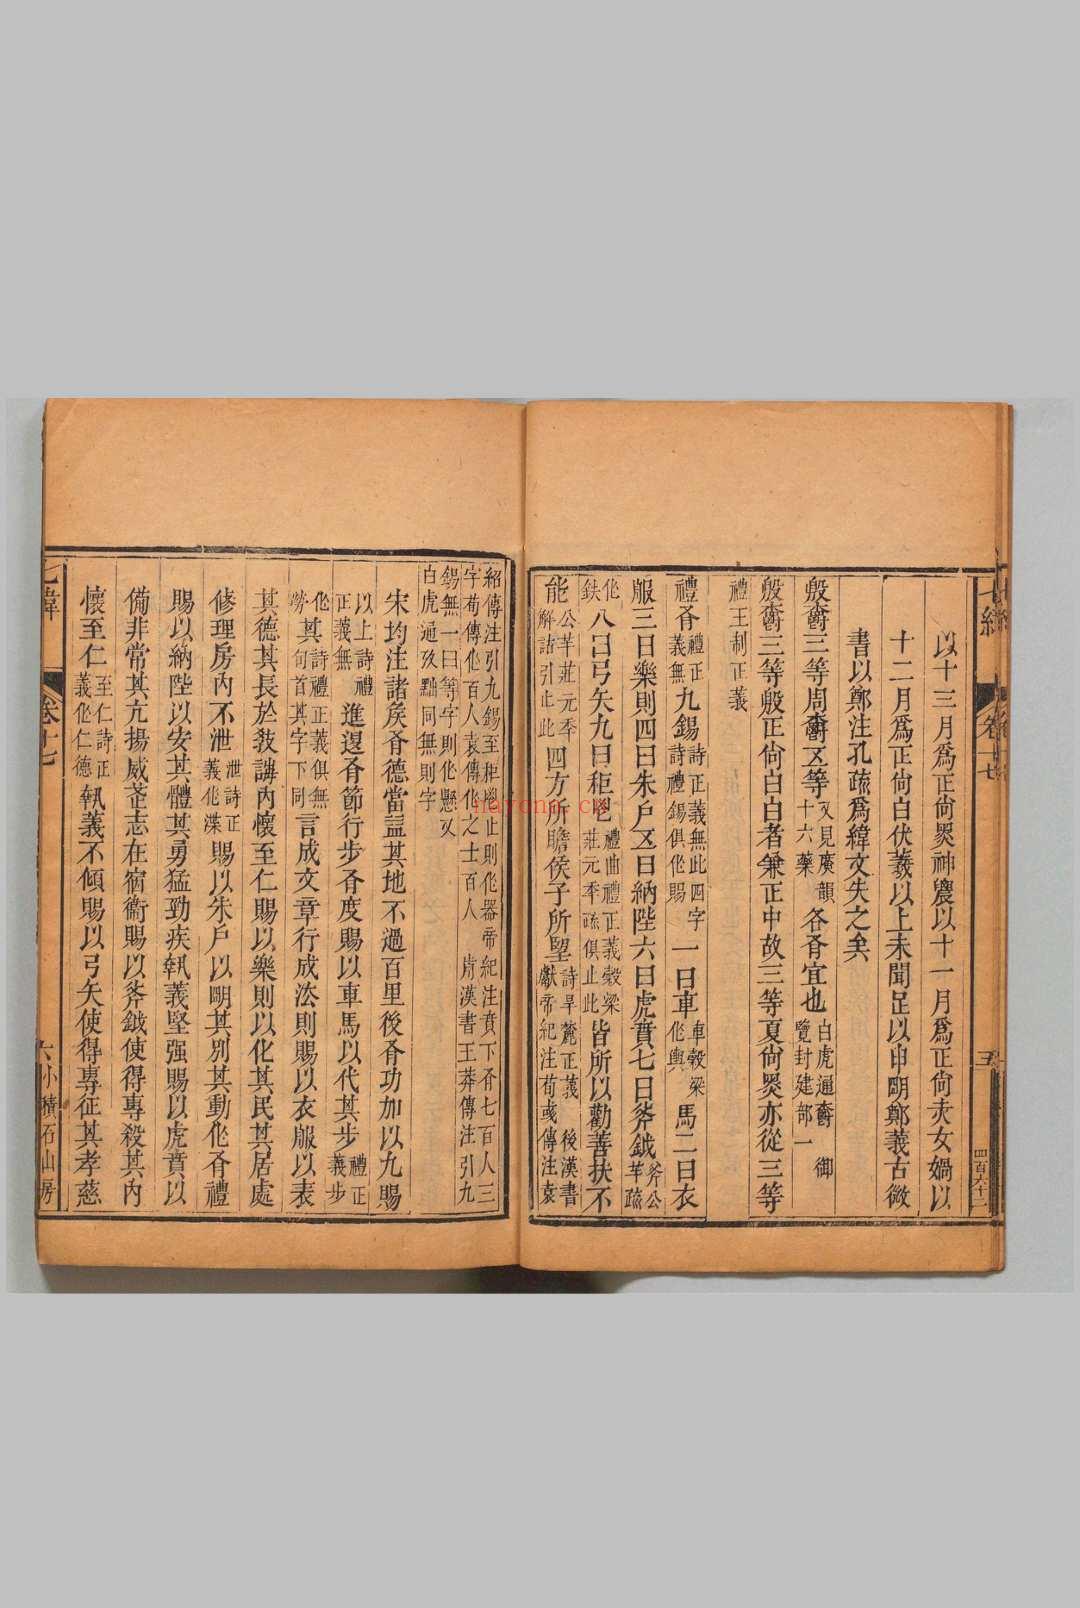 以十三月爲正尙黑神農以十一月爲正尙赤女媧以
十二月爲正尙白伏羲以上未聞足以申明鄭義古微
書以鄭注孔疏爲緯文失之矣
殷爵三等周爵五等又見廣韻十六藥各有宜也白虎通爵 御覽封建部一
殷爵三等殷正尙白白者兼正中故三等夏尙黑亦從三等
禮王制正義
禮有禮正義無九錫詩正義無此四字詩禮錫俱作賜一曰車車穀梁作輿馬二曰衣
服三曰樂則四曰朱戶五曰納陛六曰虎賁七曰斧鉞斧公羊疏
作鈇八曰弓矢九曰秬鬯禮曲禮正義穀梁莊元年疏俱止此皆所以勸善扶不
能公羊莊元年解詁引止此四方所瞻侯子所望詩旱麓正義 後漢書獻帝紀注荀彧傳注袁
紹傳注引九錫至秬鬯止則作器帝紀注賁下有七百人三
字荀傳作百人袁傳作之士百人 肯漢書王莽傳注引九
錫無一曰等字則作懸 又
白虎通攷黜同無則字
宋均注諸矦有德當益其地不過百里後有功加以九賜
以上詩禮正義無進退有節行步有度賜以車馬以代其步禮正義步
作勞其詩禮正義俱無句首其字下同言成文章行成法則賜以衣服以表
其德其長於敎誨內懷至仁賜以樂則以化其民其居處
修理房內不泄泄詩正義作渫賜以朱戶以明其別其動作有禮
賜以納陛以安其體其勇猛勁疾執義堅强賜以虎賁以
備非常其亢揚威武志在宿衞賜以斧鉞使得專殺其內
懷至仁至仁詩正義作仁德執義不傾賜以弓矢使得專征其孝慈
七緯
卷十七
五
四百六十二
七緯
卷十七
六
小積石山房